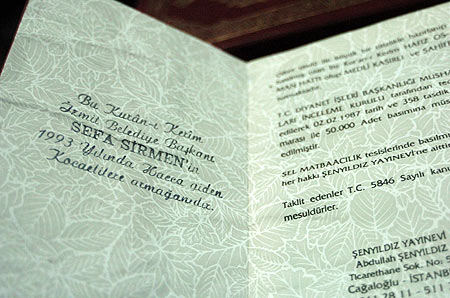 Bu Kurân-ı Kerîm
İzmit Belediye Başkanı
SEFA SİRMEN'in
1993 Yılında Hacca giden
Kocaelilere armağanıdır.
büyük bir titizlikle hazırlanıp
Kur'an-ı Kerim HAFIZ OS-
MAN HATTI olup MEDİLİ KASIBEL ve SAHİFE
T.C. DİYANET İŞLERİ BAŞKANLIĞI MUSHA
LARI İNCELEME KURULU tarafından
edilerek 02.07.1987 tarih ve 358 tasdik
marası ile 50.000 Adet basımına müs
edilmiştir.
SEL MATBAACILIK tesislerinde basılmı
her hakkı ŞENYILDIZ YAYINEVİ'ne aittir
Taklit edenler T.C. 5846 Sayılı kanu
mesuldürler.
ŞENYILDIZ YAYINEVİ
Abdullah ŞENYILDIZ
Ticarethane Sok. No: 5
Cağaloğlu - İSTANB
28 11 - 511